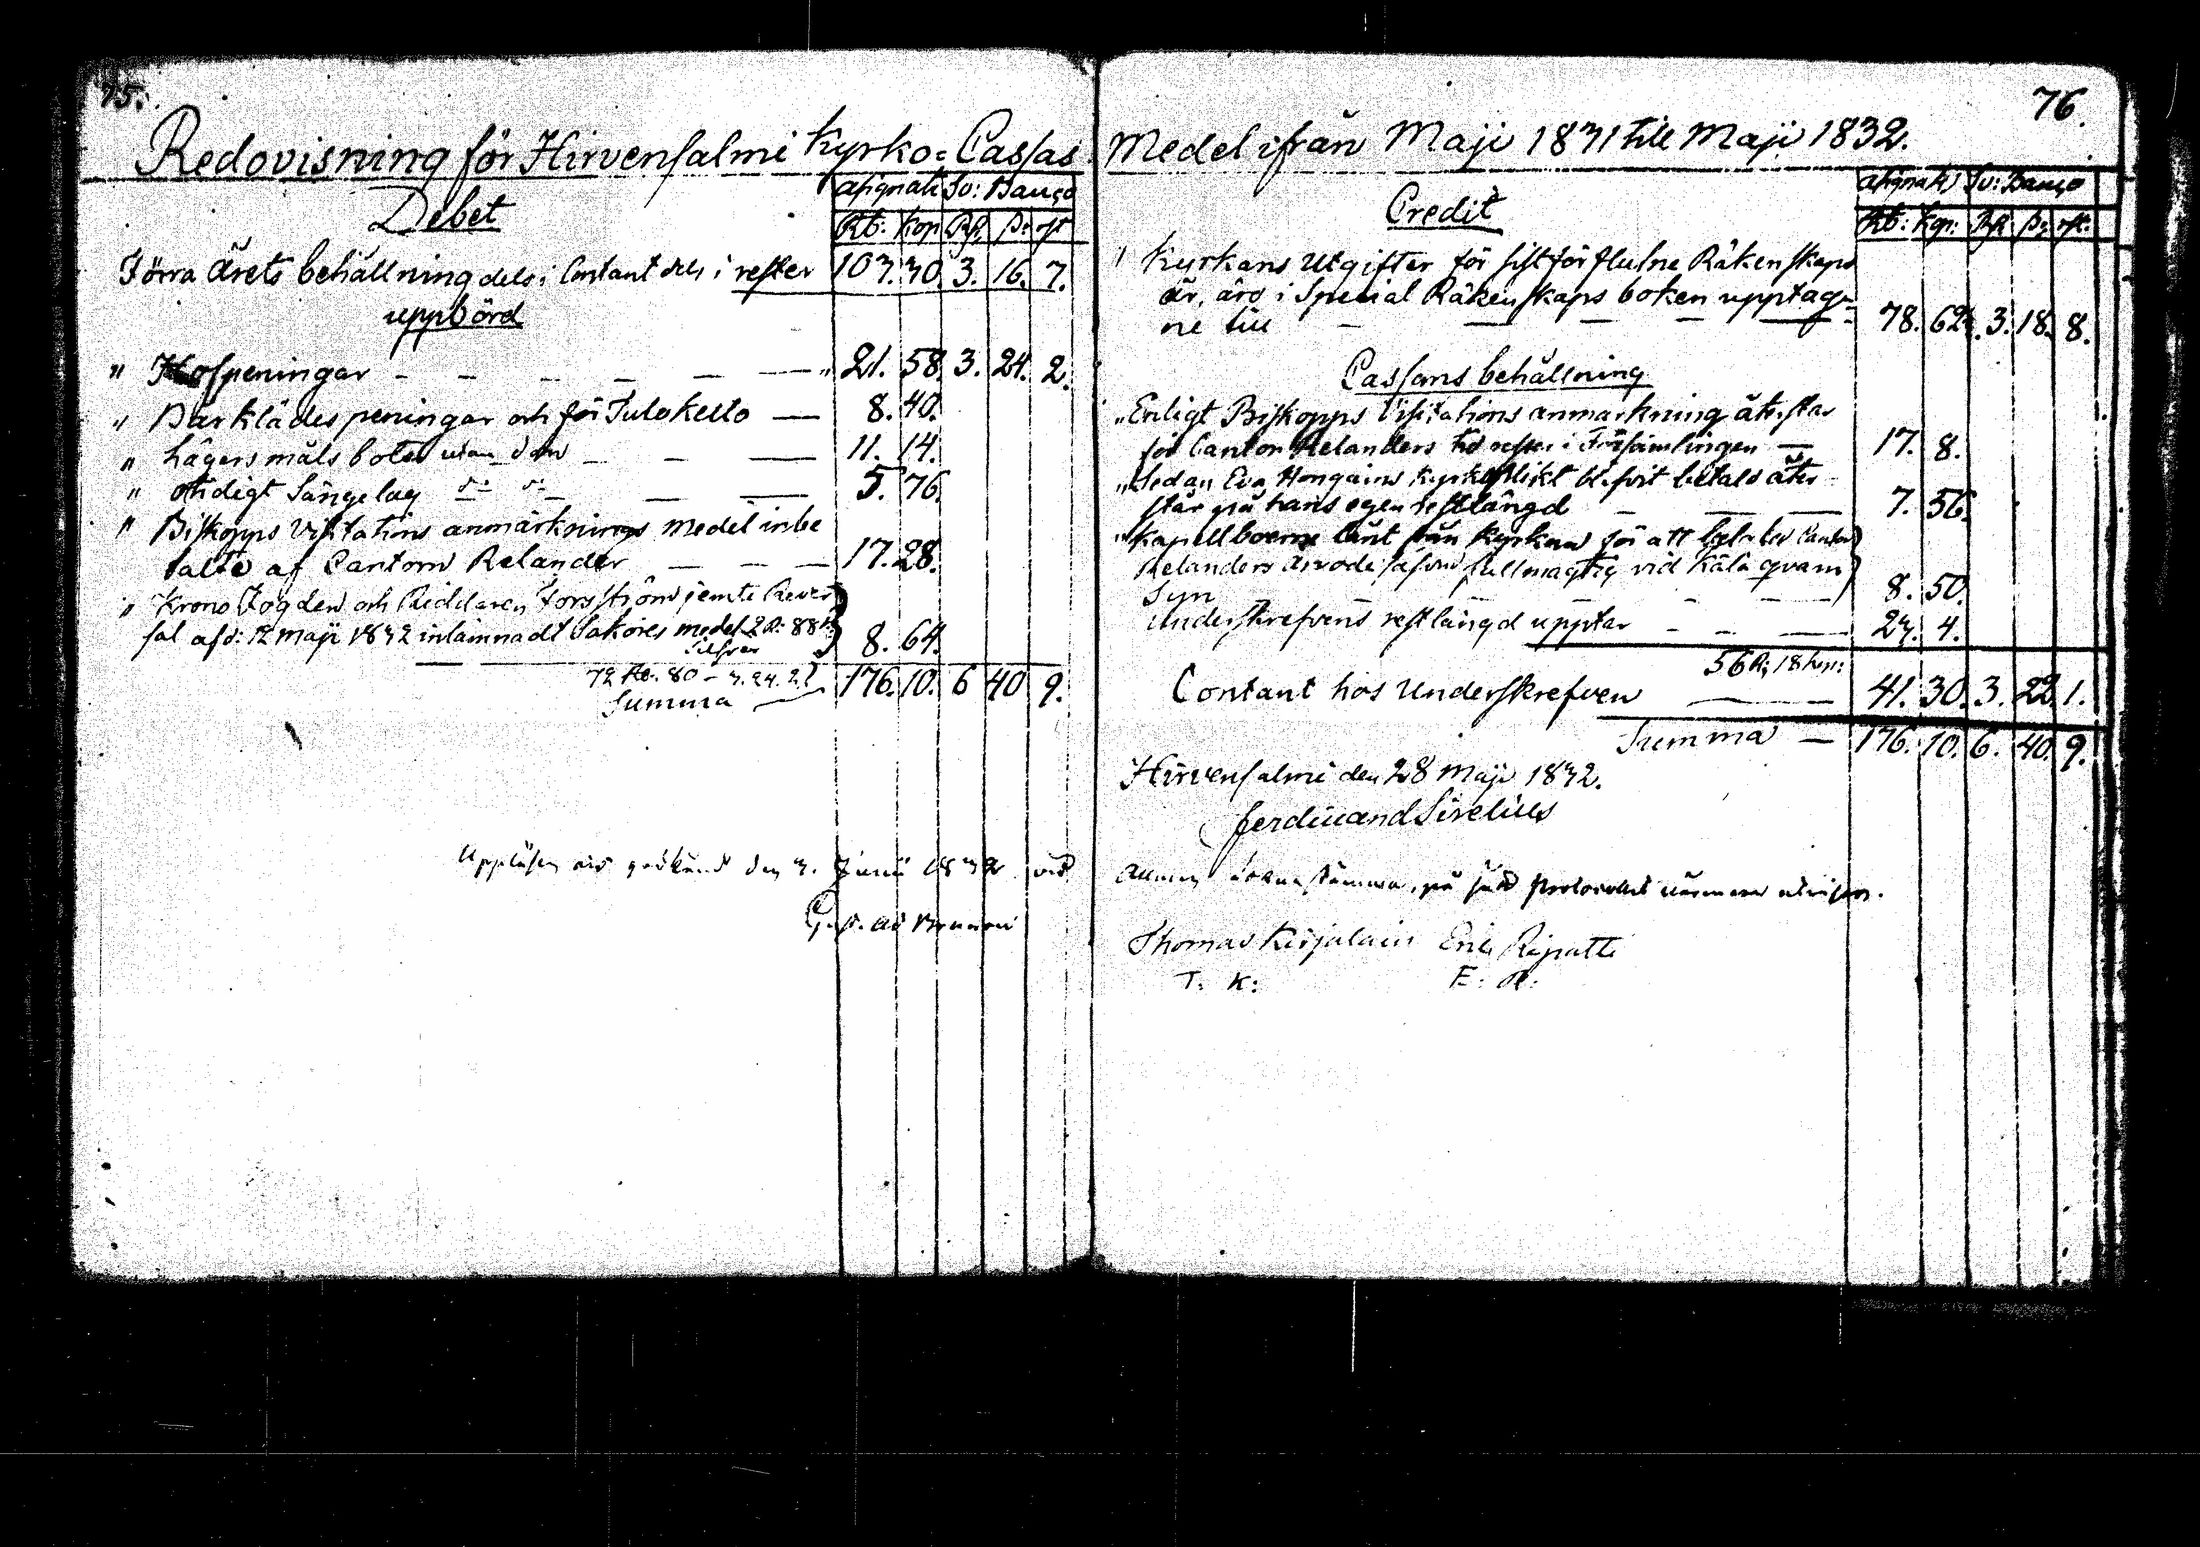 75.
Redovisning för Hirvensalmi Kyrko=Cassas
Debet
Assignat: Sv: Banco
Rb: Kop Rd. ß: rst
Förra Årets behållning dels i Contant dels i rester 103. 30. 3. 16. 7.
uppbörd
" Hofpeningar — — — — — — " 21. 58. 3. 24. 2.
" Bårklädes peningar och för Tulo Kello — 8. 40.
" Lägersmåls böter utan dom — — — 11. 14.
" otidigt Sängelag d:o d:o — — 5. 76.
" Biskopps Visitations anmärknings medel inbe
talte af Cantorn Relander — — — 17. 28.
" Krono Fogden och Riddaren Forsström jemte Rever
sal af d: 12 Maji 1832 inlämnadt Saköres medel 2 R: 88 k:
Silfver 8. 64.
72 Ro. 80 – 3. 24. 2.
Summa — 176. 10. 6 40 9.
Uppläsen och godkänd den 3. Junii 1832 vid
76.
Medel ifrån Maji 1831 till Maji 1832.
Credit
Assignat: Sv: Banco
Rb: Kop: Rd. ß: rst.
" Kyrkans Utgifter för sistförflutne Räkenskaps
år, äro i Special Räkenskaps boken upptag-
ne till — — — — — 78. 62. 3. 18. 8.
Cassans behållning
" Enligt Biskopps Visitations anmärkning återstår
för Cantor Relanders tid rester i Församlingen — 17. 8.
" Sedan Eva Hongains Kyrkoplikt blifvit betald åter-
står på hans egen restlängd — — — 7. 56.
" Kapellboerne lånt från Kyrkan för att betala Cantor
Relanders arvode såsom fullmägtig vid Kälä qvarn
Syn — — — — 8. 50.
Underskrefvens restlängd upptar — — — 23. 4.
56 R; 18 kop:
Contant hos Underskrefven — — 41. 30. 3. 22. 1.
Summa — 176. 10. 6. 40. 9.
Hirvensalmi den 28 Maji 1832.
Ferdinand Sirelius
allmän Sockenstämma, på sätt Protocollet närmare utvisar.
Thomas Kirjalain Eric Ripatti
T. K: E: R: